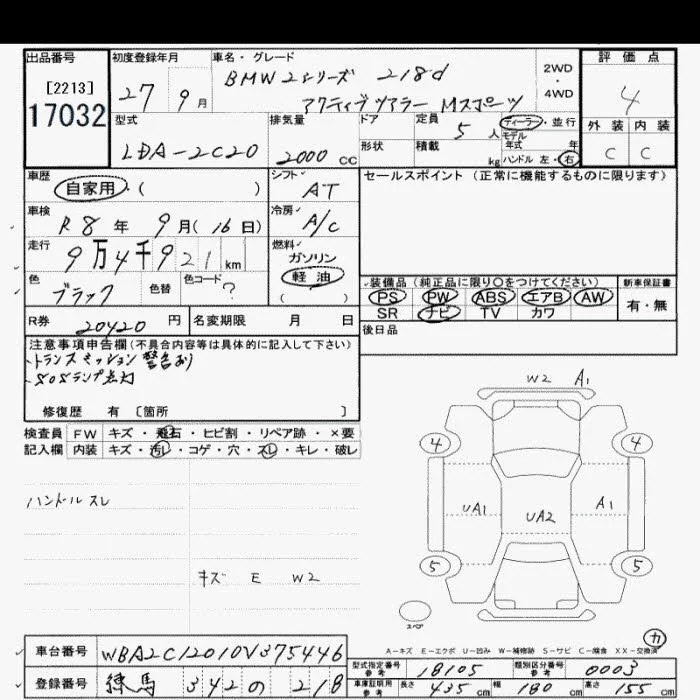 出品番号
[2213]
17032
初度登録年月
27年 9月
車名・グレード
BMW 2シリーズ 218d
アクティブツアラー Mスポーツ
2WD
・
4WD
評価点
4
外装 内装
C C
型式
LDA-2C20
排気量
2000 cc
ドア
形状
定員
5人
積載
kg
ディーラー・並行
モデル年式 年
ハンドル 左・右
車歴
自家用・( )
シフト
AT
車検
R8年 9月(16日)
冷房
A/C
走行
9万4千921km
燃料
ガソリン
軽油
( )
色
ブラック
色替
色コード
?
R券
20420円
名変期限 月 日
セールスポイント (正常に機能するものに限ります)
装備品(純正品に限り〇をつけてください)
PS PW ABS エアB AW
SR ナビ TV カワ
新車保証書
有・無
後日品
注意事項申告欄(不具合内容等は具体的に記入して下さい)
トランスミッション警告あり
SOSランプ点灯
修復歴 有 [箇所 ]
検査員 FW キズ・飛石・ヒビ割・リペア跡・×要
記入欄 内装 キズ・汚レ・コゲ・穴・スレ・キレ・破レ
ハンドル スレ
キズ E W2
W2 A1
4 4
UA1 UA2 A1
5 5
スペア
カ
A-キズ E-エクボ U-凹み W-補修跡 S-サビ C-腐食 XX-交換済
車台番号 WBA2C12010V375446
登録番号 練馬 342 の 218
型式指定番号 参考 18105
類別区分番号 参考 0003
車庫証明用 参考 長さ 435cm 幅 180cm 高さ 155cm